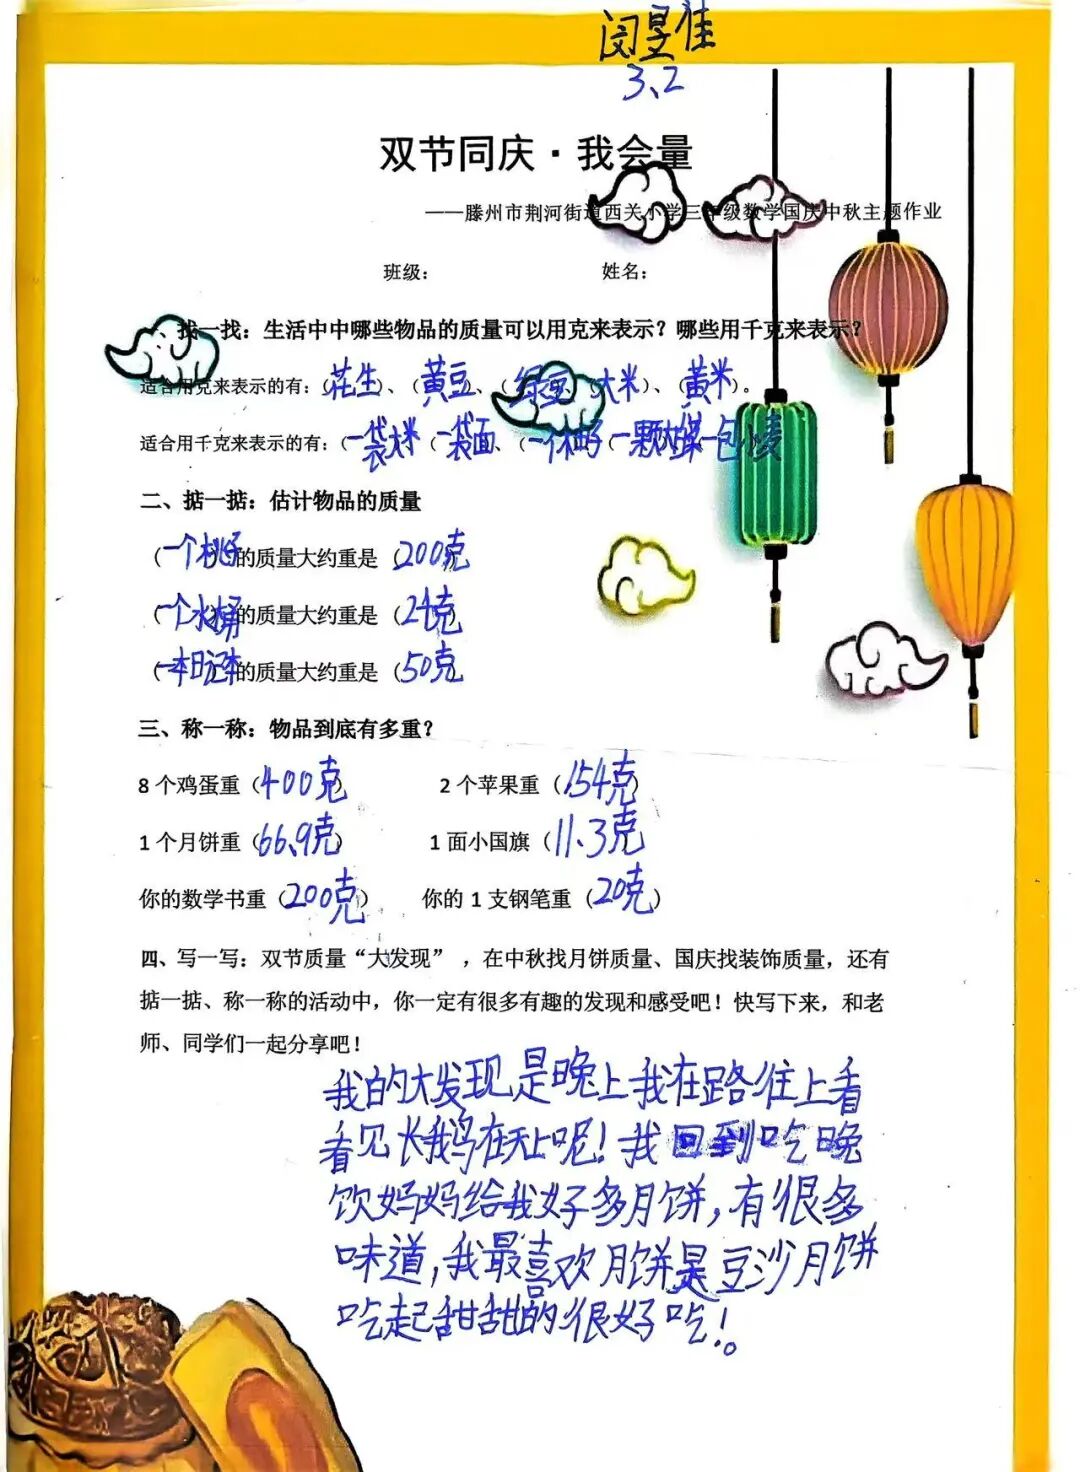 闵昱佳
3、2
双节同庆·我会量
——滕州市荆河街道西关小学三年级数学国庆中秋主题作业
班级: 姓名:
一、找一找:生活中中哪些物品的质量可以用克来表示?哪些用千克来表示?
适合用克来表示的有:(花生)、(黄豆)、(绿豆)、(大米)、(黄米)。
适合用千克来表示的有:(一袋大米)、(一袋面)、(一个柚子)(一颗大 一包小麦
二、掂一掂:估计物品的质量
(一个桃子的质量大约重是(200克
(一个水桶的质量大约重是(2千克
(一本日记本的质量大约重是(50克
三、称一称:物品到底有多重?
8个鸡蛋重(400克) 2个苹果重(154克)
1个月饼重(66.9克) 1面小国旗(11.3克
你的数学书重(200克) 你的1支钢笔重(20克)
四、写一写:双节质量“大发现”,在中秋找月饼质量、国庆找装饰质量,还有
掂一掂、称一称的活动中,你一定有很多有趣的发现和感受吧!快写下来,和老
师、同学们一起分享吧!
我的大发现是晚上我在路往上看
看见长鹅在天上呢!我回到吃晚
饮妈妈给我好多月饼,有很多
味道,我最喜欢月饼是豆沙月饼
吃起甜甜的很好吃!。